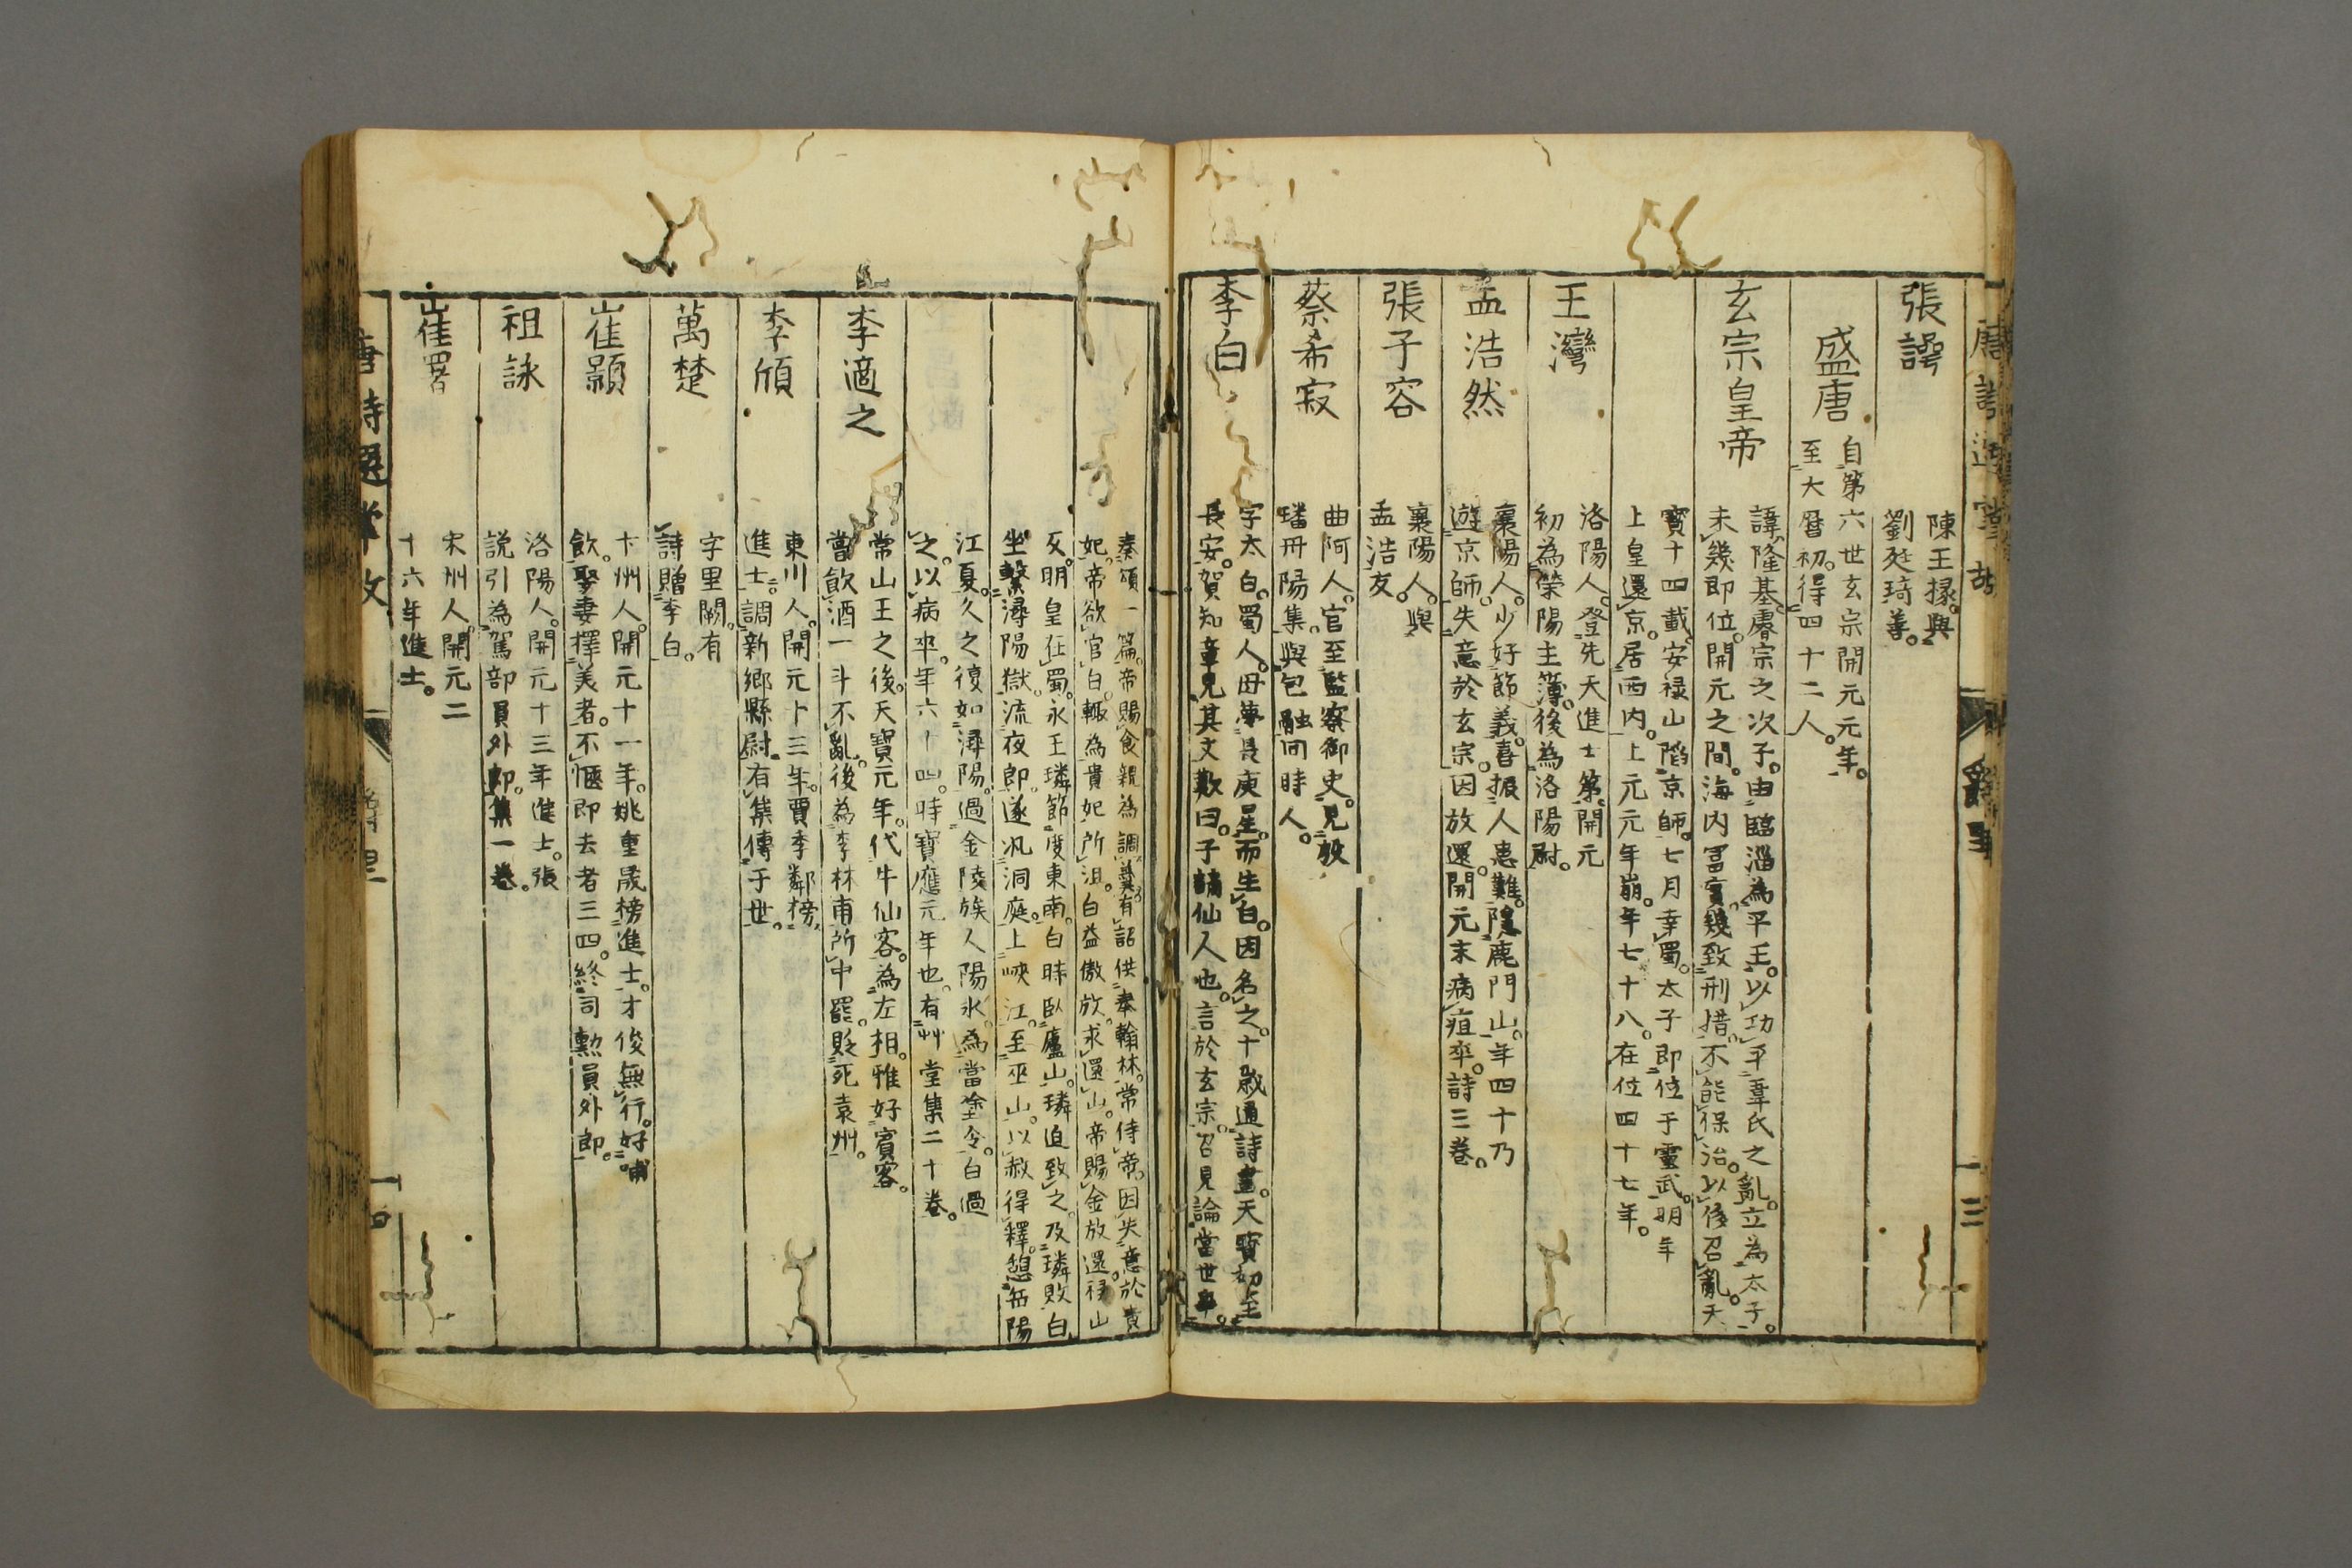 張諤
陳王掾與
劉廷琦善
盛唐
自第六世玄宗開元元年
至大曆初得四十二人
玄宗皇帝
諱隆基睿宗之次子由臨淄為平王以功平韋氏之亂立為太子
未幾即位開元之間海内冨實幾致刑措不能保治以後召亂天
寶十四載安禄山陷京師七月幸蜀太子即位于靈武明年
上皇還京居西内上元元年崩年七十八在位四十七年
王灣
洛陽人登先天進士第開元
初為滎陽主簿後為洛陽尉
孟浩然
襄陽人少好節義喜振人患難隠鹿門山年四十乃
遊京師失意於玄宗因放還開元末病疽卒詩三卷
張子容
襄陽人與
孟浩友
蔡希寂
曲阿人官至監察御史見殷
璠丹陽集與包融同時人
李白
字太白蜀人母夢長庚星而生白因名之十歳通詩書天寶初至
長安賀知章見其文歎曰子謫仙人也言於玄宗召見論當世事
奏頌一篇帝賜食親為調羹有詔供奉翰林常侍帝因失意於貴
妃帝欲官白輙為貴妃所沮白益傲放求還山帝賜金放還禄山
反明皇在蜀永王璘節度東南白時臥廬山璘迫致之及璘敗白
坐繫潯陽獄流夜郎遂汎洞庭上峽江至巫山以赦得釋憩岳陽
江夏久之復如潯陽過金陵族人陽氷為當塗令白過
之以病卒年六十四時寶應元年也有艸堂集二十卷
李適之
常山王之後天寶元年代牛仙客為左相雅好賓客
嘗飲酒一斗不亂後為李林甫所中罷貶死袁州
李頎
東川人開元十三年賈季鄰榜
進士調新鄉縣尉有集傳于世
萬楚
字里闕有
詩贈李白
崔顥
卞州人開元十一年姚重晟榜進士才俊無行好蒱
飲娶妻擇美者不愜即去者三四終司勲員外郎
祖詠
洛陽人開元十三年進士張
説引為駕部員外郎集一卷
崔署
宋州人開元二
十六年進士